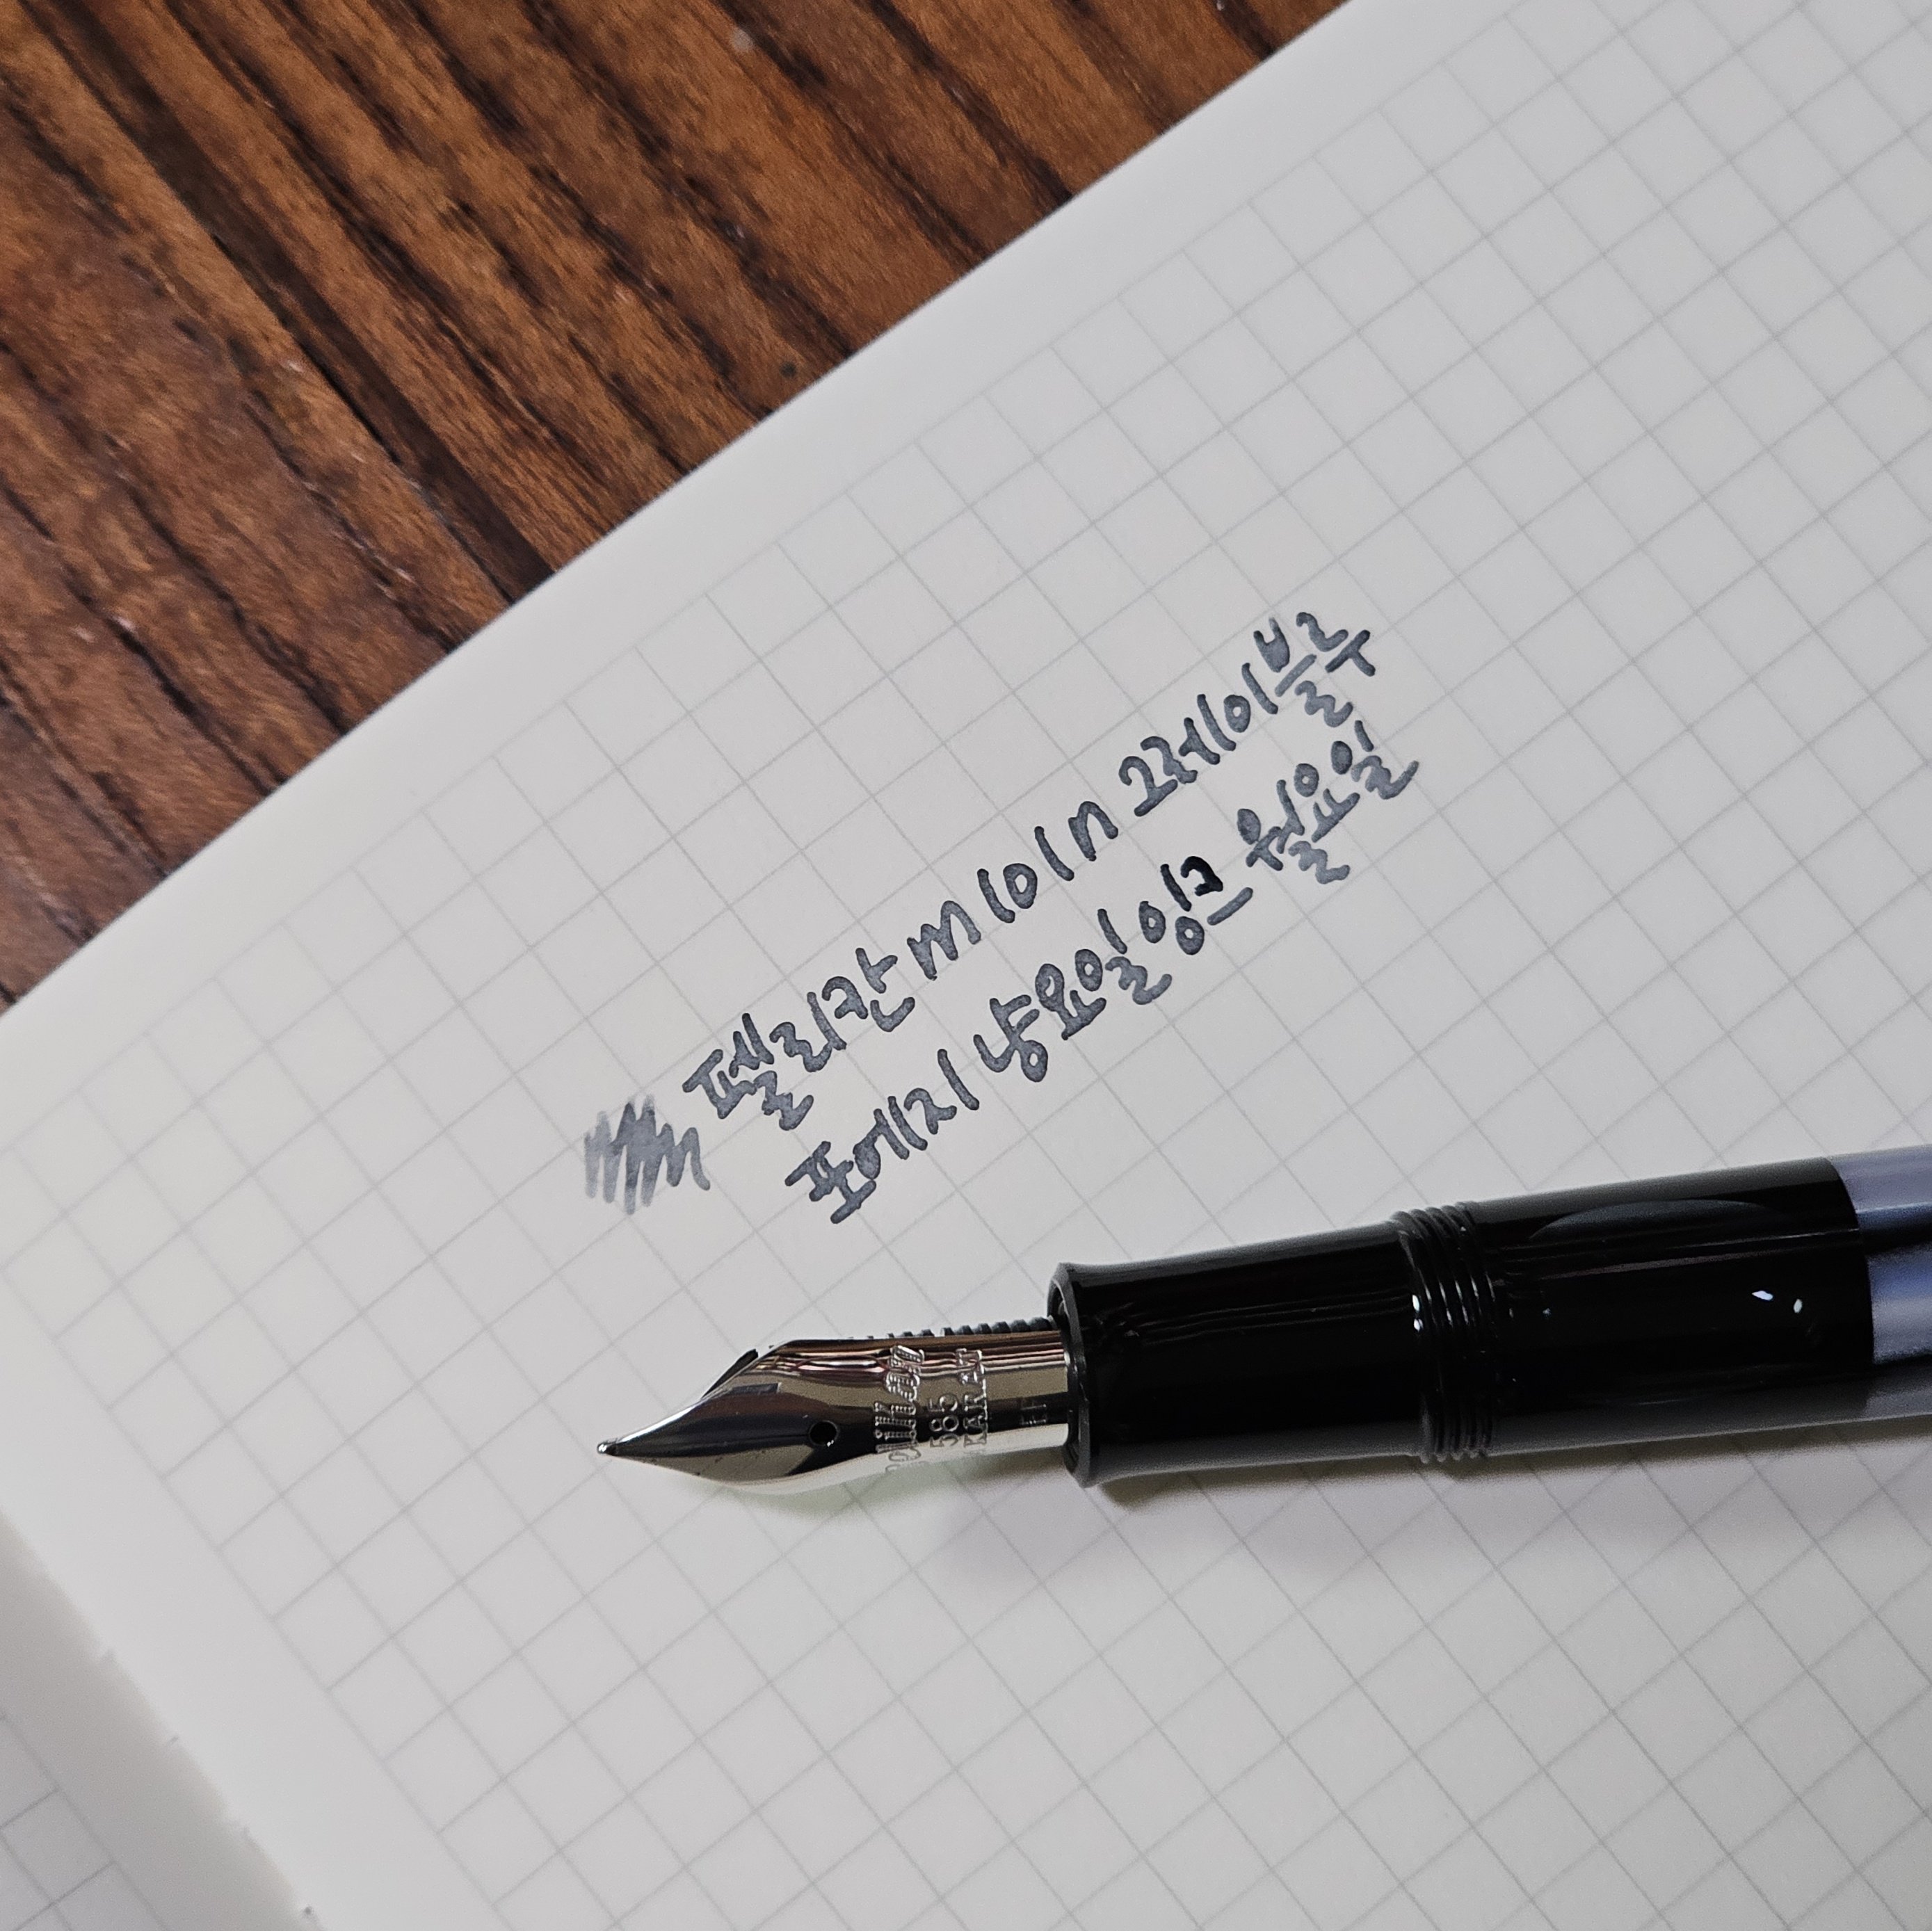 펠리칸 m101n 그레이블루
포에지 냥요일잉크 월요일
Pelikan
585
KARAT
EF